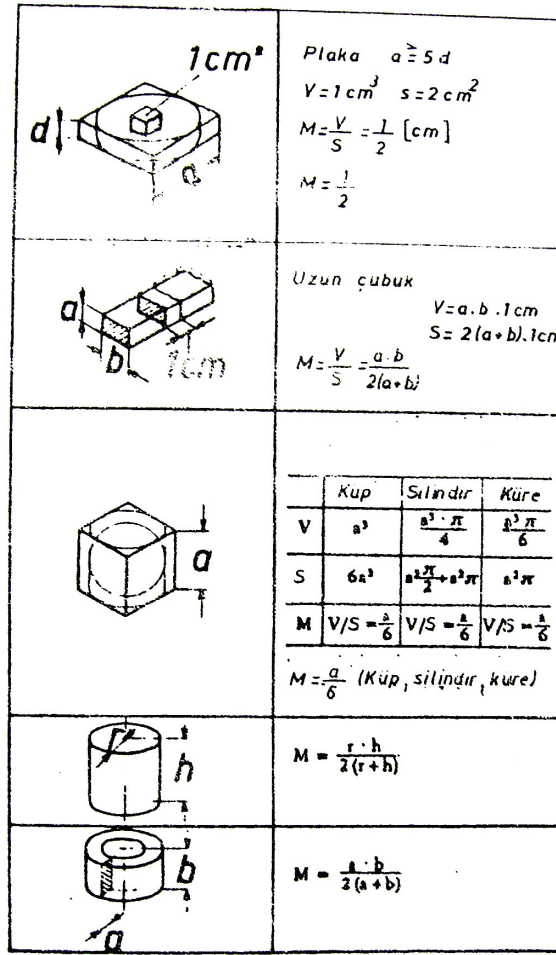 1cm²
d
a
Plaka a ≥ 5 d
V = 1 cm³ s = 2 cm²
M = V/S = 1/2 [cm]
M = 1/2
a
b
1cm
Uzun çubuk
V = a.b.1cm
S = 2(a+b).1cm
M = V/S = a.b/2(a+b)
a
Küp Silindir Küre
V a³ a³·π/4 a³π/6
S 6a² a²π/2+a²π a²π
M V/S = a/6 V/S = a/6 V/S = a/6
M = a/6 (Küp, silindir, küre)
r
h
M = r·h/2(r+h)
b
a
M = a·b/2(a+b)